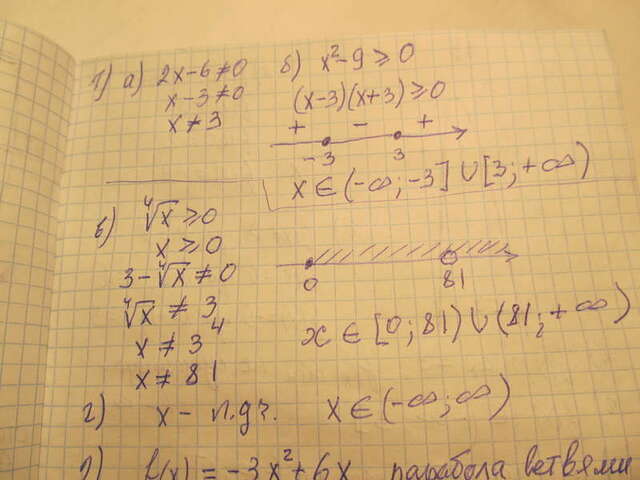 1) а) 2x-6≠0
x-3≠0
x≠3
б) x²-9≥0
(x-3)(x+3)≥0
+ - +
-3 3
x∈(-∞;-3]∪[3;+∞)
в) ⁴√x≥0
x≥0
3-⁴√x≠0
⁴√x≠3
x≠3⁴
x≠81
0 81
x∈[0;81)∪(81;+∞)
г) x- п.д.ч. x∈(-∞;∞)
f(x)=-3x²+6x парабола ветвями